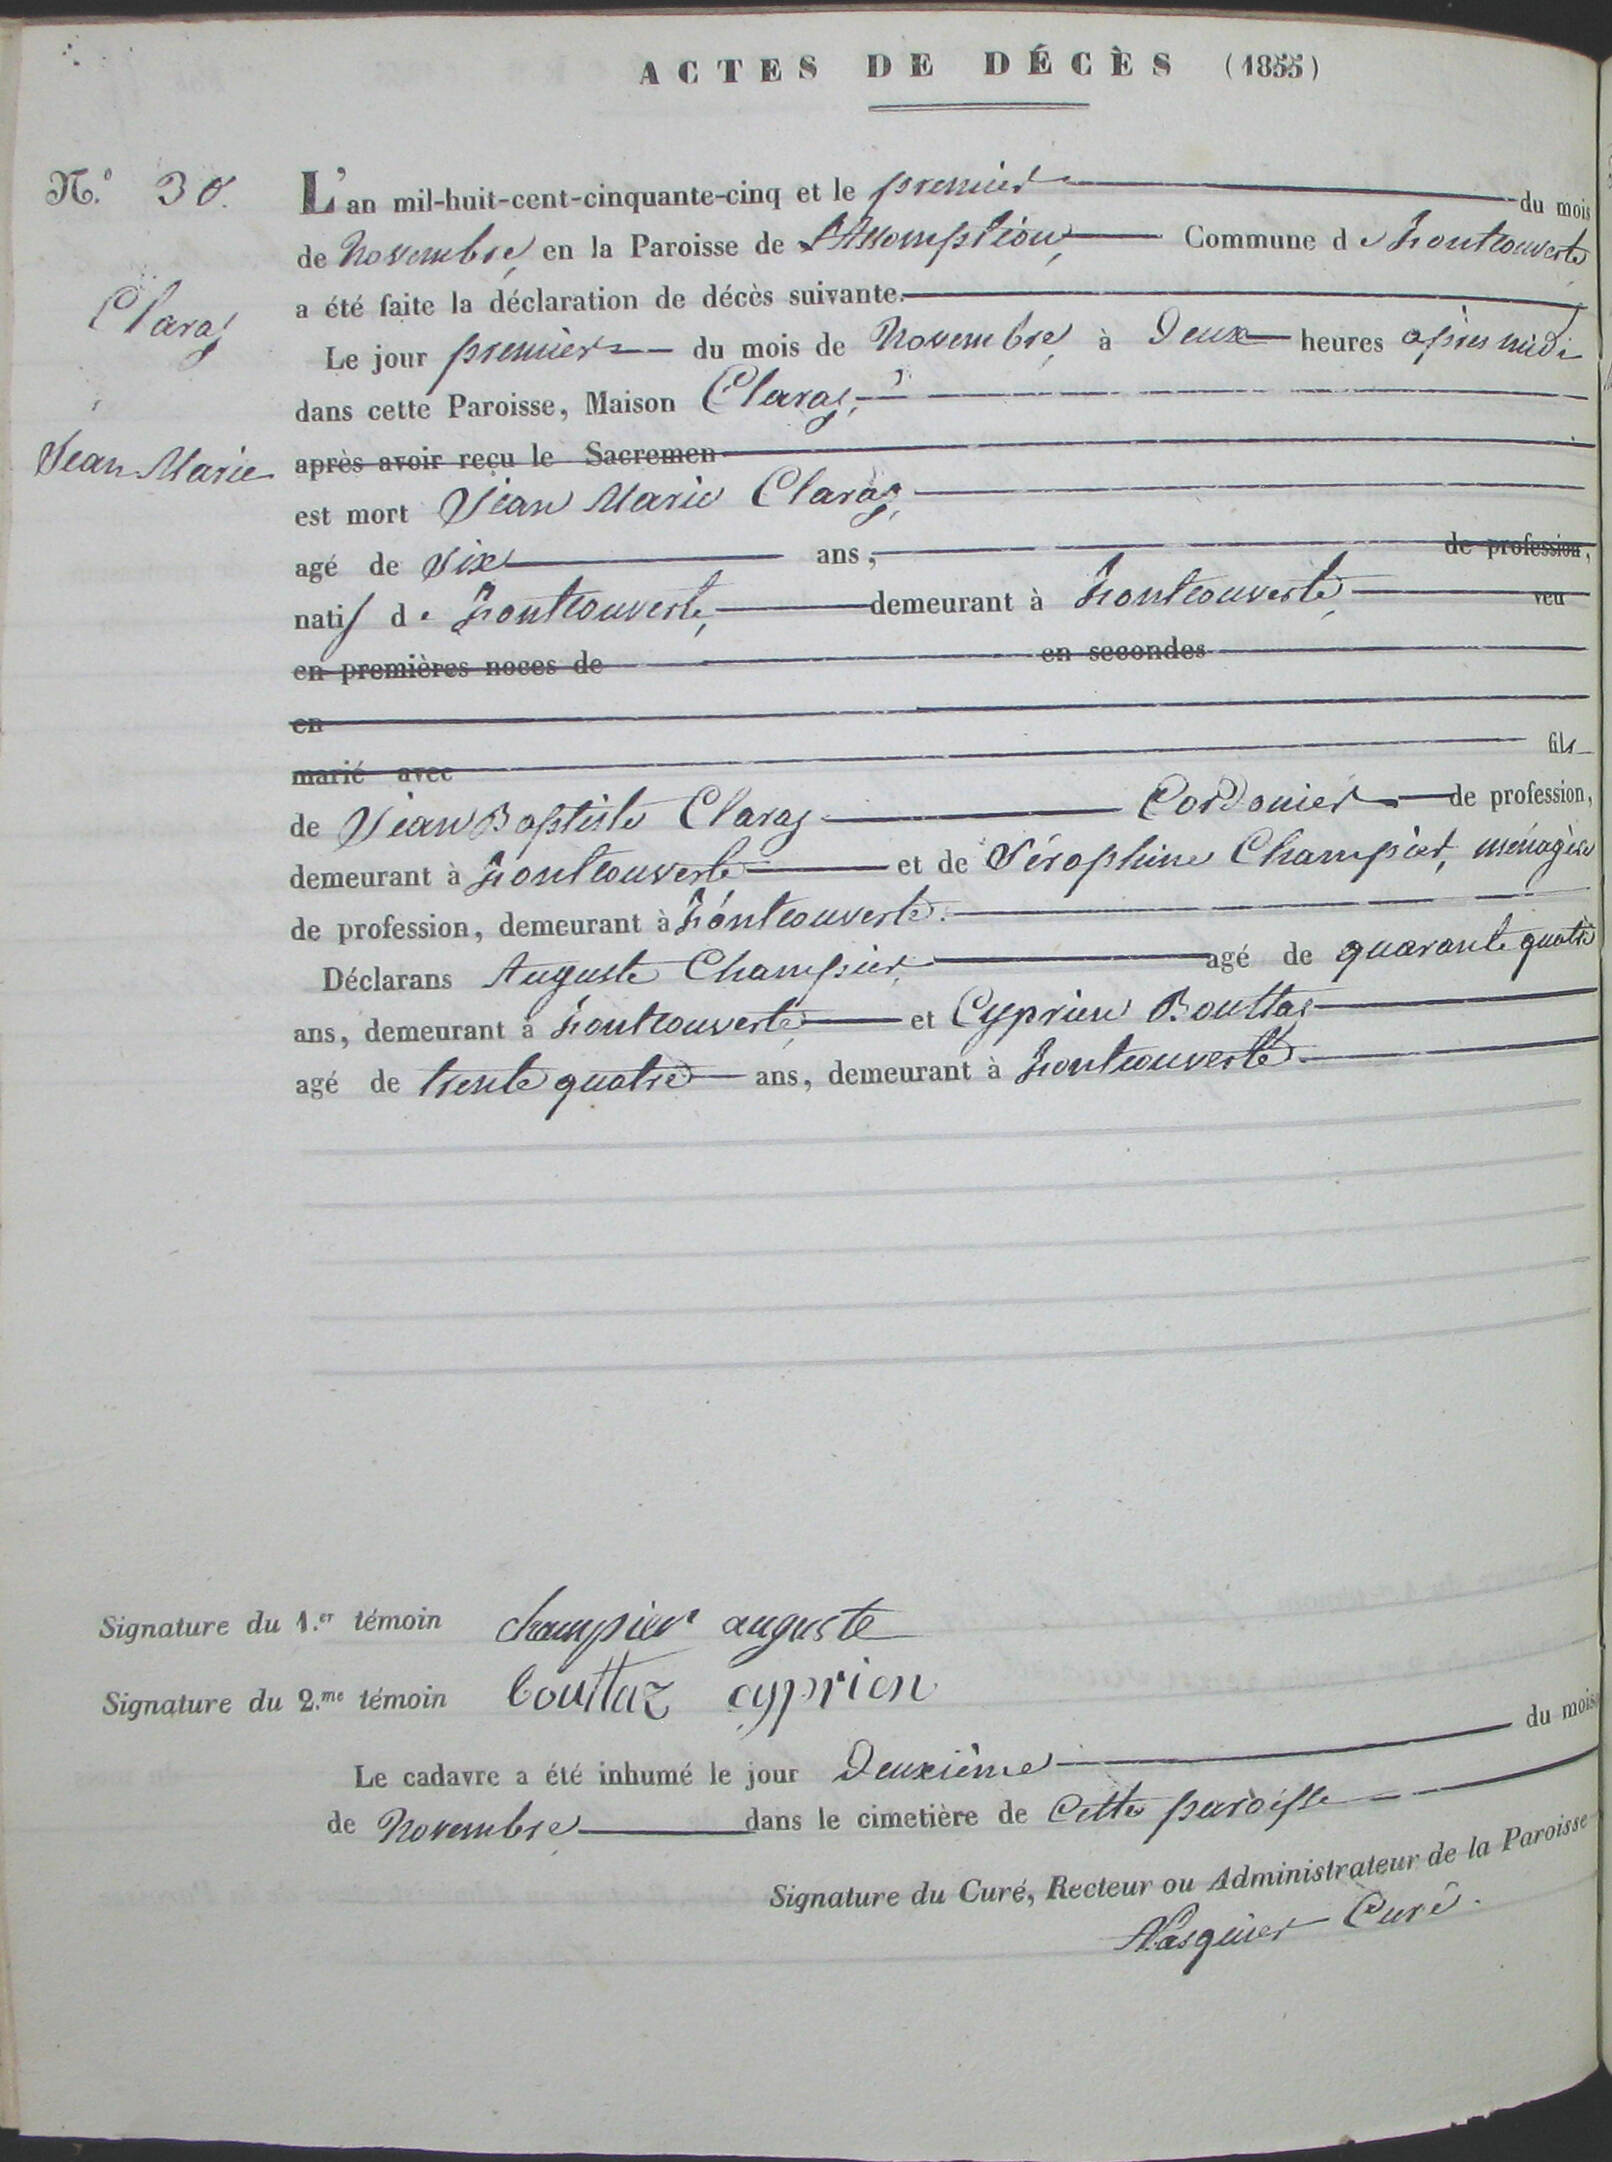 ACTES DE DÉCÈS (1855)
N.º 30.
L'an mil-huit-cent-cinquante-cinq et le premier du mois
de Novembre, en la Paroisse de L'Assomption, Commune de Fontcouverte
a été faite la déclaration de décès suivante.
Claraz
Le jour premier du mois de Novembre, à Deux heures après midi
dans cette Paroisse, Maison Claraz,
Jean Marie
après avoir reçu le Sacremen
est mort Jean Marie Claraz,
agé de Six ans, de profession,
natif de Fontcouverte, demeurant à Fontcouverte, veu
en premières noces de en secondes
en
marié avec fils
de Jean Baptiste Claraz Cordonier de profession,
demeurant à Fontcouverte et de Séraphine Champier, ménagère
de profession, demeurant à Fontcouverte.
Déclarans Auguste Champier, agé de quarante quatre
ans, demeurant à Fontcouverte, et Cyprien Bouttaz
agé de trente quatre ans, demeurant à Fontcouverte.
Signature du 1.er témoin champier auguste
Signature du 2.me témoin bouttaz cyprien
Le cadavre a été inhumé le jour Deuxième du mois
de Novembre dans le cimetière de Cette paroisse
Signature du Curé, Recteur ou Administrateur de la Paroisse
Curé.